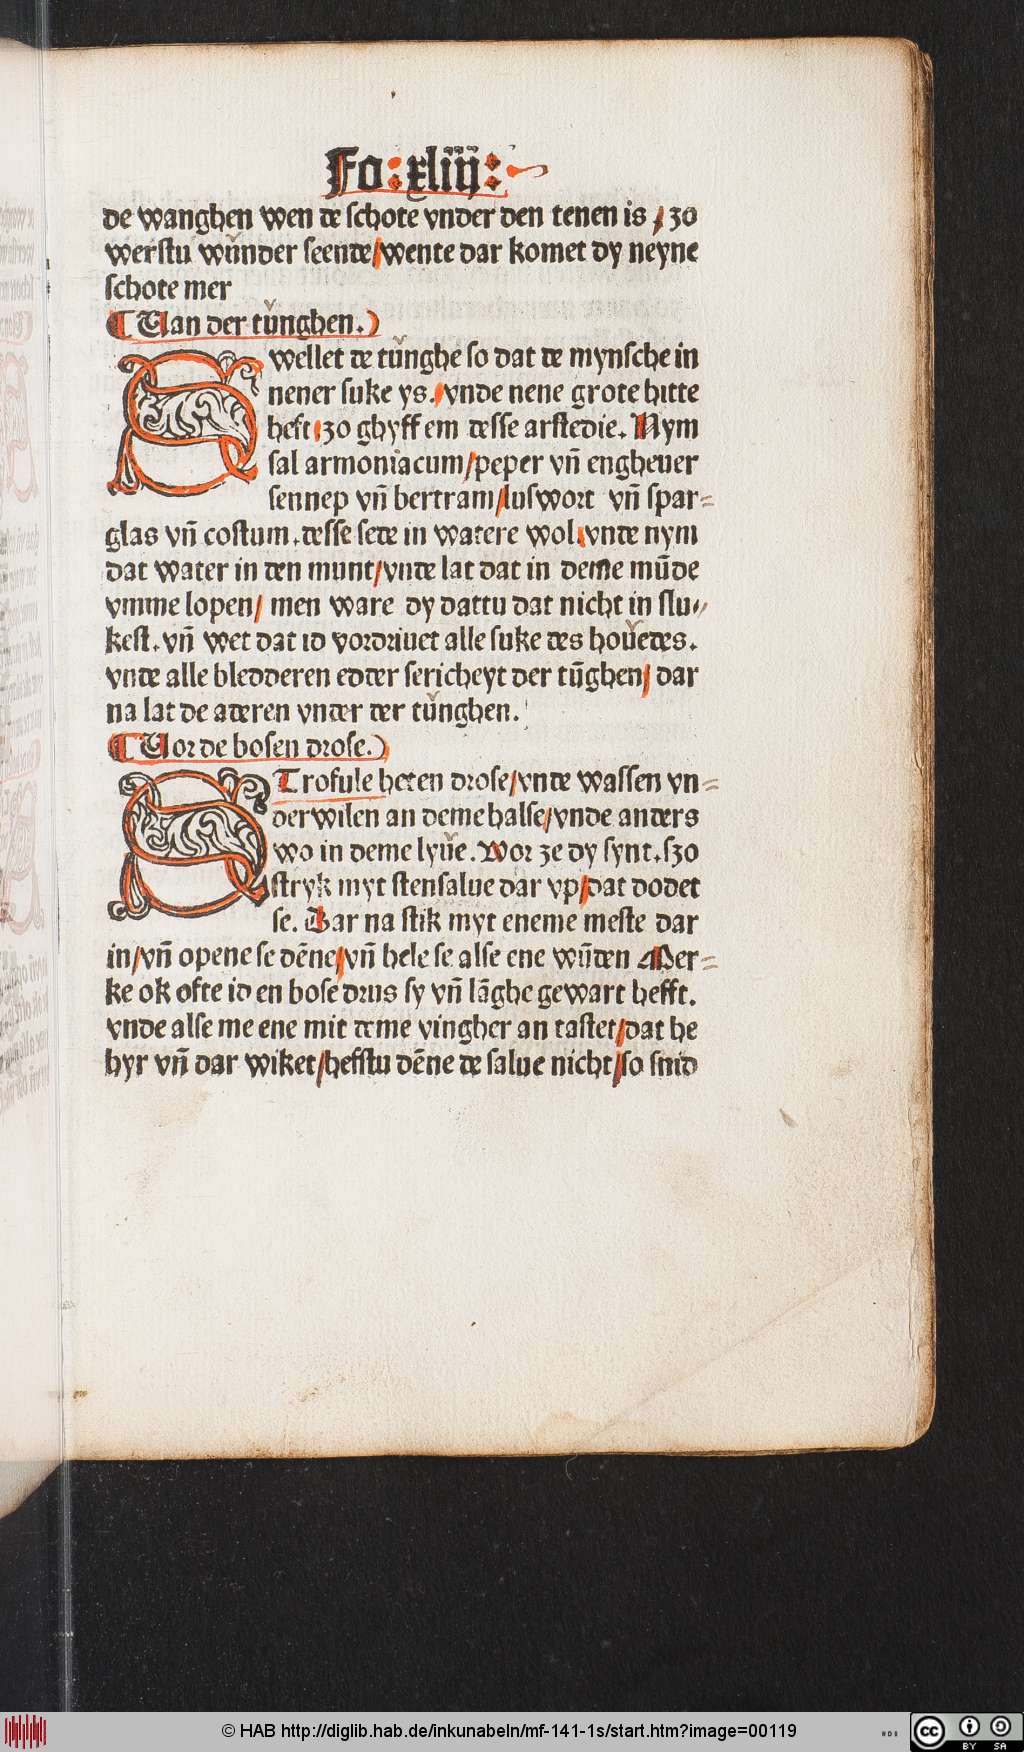 Fo: xliij:
de wanghen wen de schote vnder den tenen is / zo
werstu wůnder seende/wente dar komet dy neyne
schote mer
¶ Uan der tůnghen.
Swellet de tůnghe so dat de mynsche in
nener suke ys. vnde nene grote hitte
heft zo ghyff em desse arstedie. Nym
sal armoniacum/peper vn̄ engheuer
sennep vn̄ bertram/luswort vn̄ spar⸗
glas vn̄ costum. desse sede in watere wol vnde nym
dat water in den munt/vnde lat dat in deme mūde
vmme lopen/ men ware dy dattu dat nicht in slu⸗
kest. vn̄ wet dat id vordriuet alle suke des houedes.
vnde alle bledderen edder sericheyt der tūghen/ dar
na lat de aderen vnder der tůnghen.
¶ Uor de bosen drose.
STrofule heten drose/vnde wassen vn⸗
derwilen an deme halse/vnde anders
wo in deme lyue. Wor ze dy synt. szo
stryk myt stensalue dar vp/dat dodet
se. Dar na stik myt eneme meste dar
in/vn̄ opene se dēne/vn̄ hele se alse ene wūden Mer⸗
ke ok ofte id en bose drus sy vn̄ lāghe gewart hefft.
vnde alse me ene mit deme vingher an tastet/dat he
hyr vn̄ dar wiket/hefstu dēne de salue nicht/so snid
© HAB http://diglib.hab.de/inkunabeln/mf-141-1s/start.htm?image=00119
cc BY SA